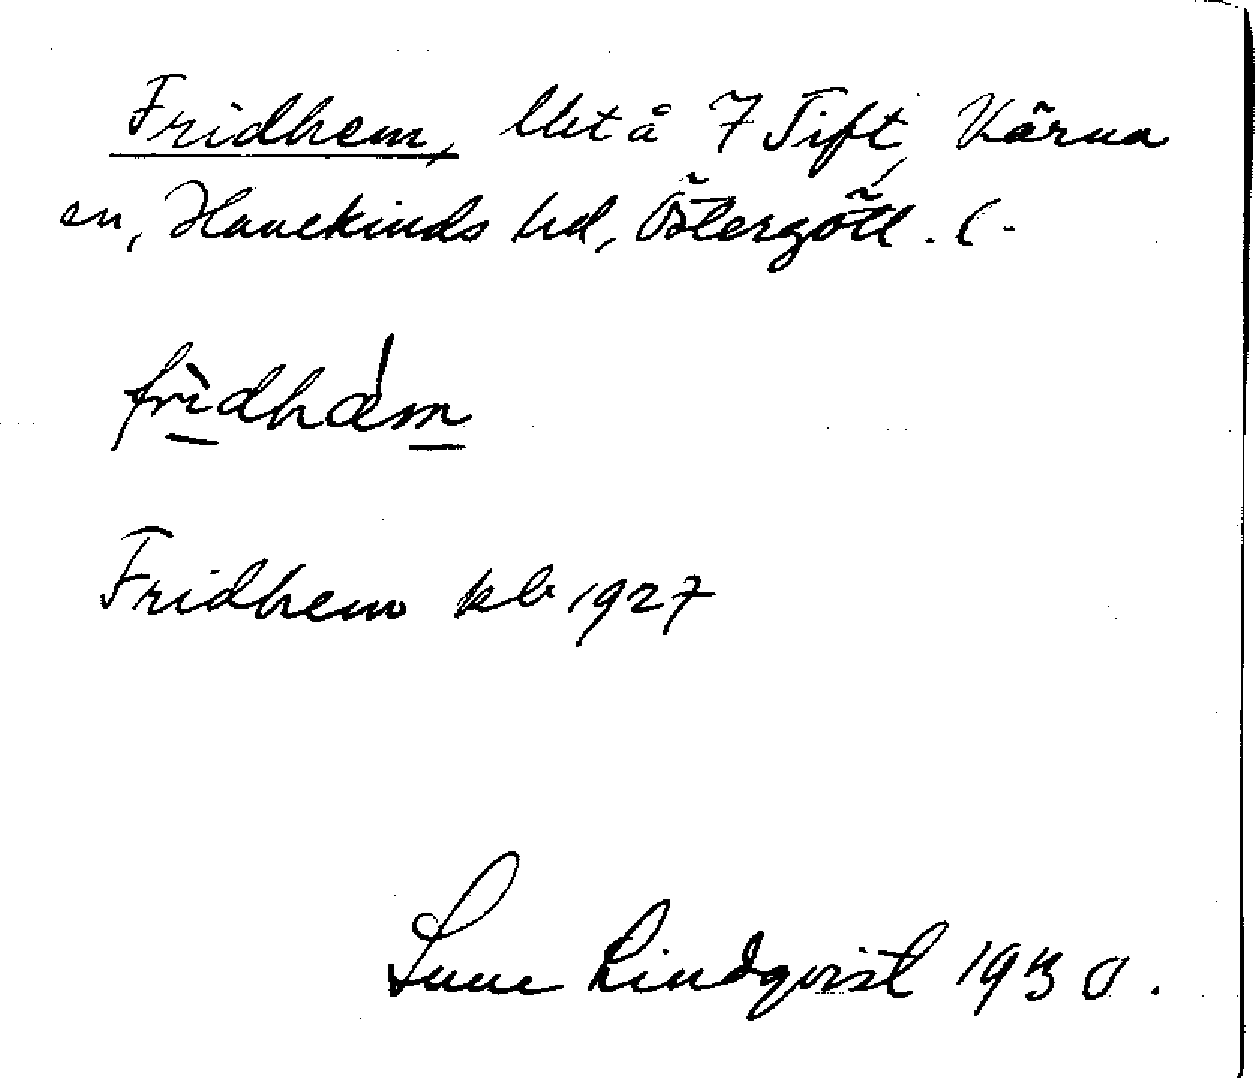 Fridhem, lht å 7 Tift, Kärna
sn, Hanekinds hd, Östergötl. l.
frìdhám
Fridhem kb 1927
Sune Lindqvist 1930.